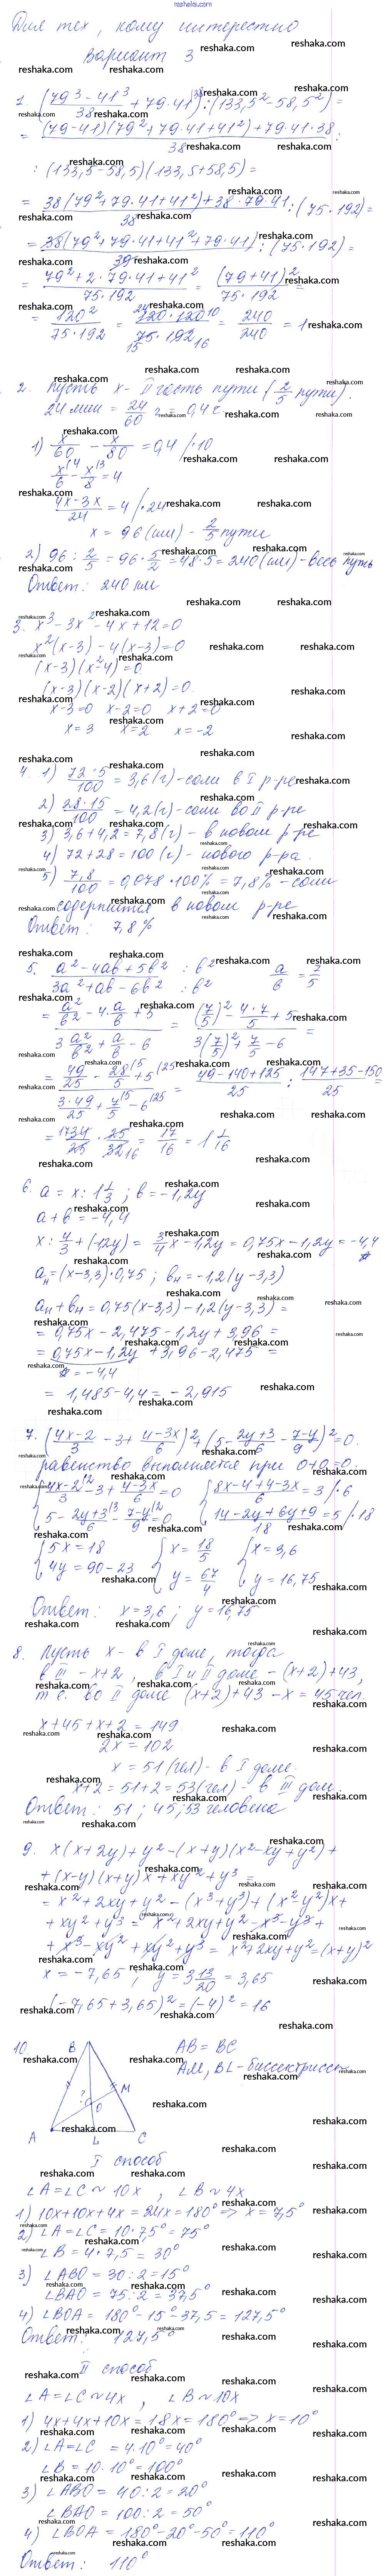 reshaka.com
Для тех, кому интересно
Вариант 3
1. ((79³ - 41³)/38 + 79·41)|³⁸ : (133,5² - 58,5²) =
= ((79-41)(79² + 79·41 + 41²) + 79·41·38)/38 :
: (133,5 - 58,5)(133,5 + 58,5) =
= (38(79² + 79·41 + 41²) + 38·79·41)/38 : (75·192) =
= 38(79² + 79·41 + 41² + 79·41)/38 : (75·192) =
= (79² + 2·79·41 + 41²)/(75·192) = (79+41)²/(75·192) =
= 120²/(75·192) = (120·120)/(75·192) = 240/240 = 1
2. Пусть x - II часть пути (2/5 пути).
24 мин = 24/60 ч = 0,4 ч.
1) x/60 - x/80 = 0,4 /·10
x/6 |⁴ - x/8 |³ = 4
(4x - 3x)/24 = 4 /·24
x = 96 (км) - 2/5 пути
2) 96 : 2/5 = 96·5/2 = 48·5 = 240 (км) - весь путь
Ответ: 240 км
3. x³ - 3x² - 4x + 12 = 0
x²(x-3) - 4(x-3) = 0
(x-3)(x²-4) = 0
(x-3)(x-2)(x+2) = 0
x-3=0 x-2=0 x+2=0
x=3 x=2 x=-2
4. 1) 72·5/100 = 3,6 (г) - соли в I р-ре
2) 28·15/100 = 4,2 (г) - соли во II р-ре
3) 3,6 + 4,2 = 7,8 (г) - в новом р-ре
4) 72 + 28 = 100 (г) - нового р-ра.
5) 7,8/100 = 0,078·100% = 7,8% - соли
содержится в новом р-ре
Ответ: 7,8%
5. (a² - 4ab + 5b²)/(3a² + ab - 6b²) :b² :b² a/b = 7/5
= (a²/b² - 4·a/b + 5)/(3a²/b² + a/b - 6) = ((7/5)² - 4·7/5 + 5)/(3(7/5)² + 7/5 - 6) =
= (49/25 - 28/5 |⁵ + 5 |²⁵)/(3·49/25 + 7/5 |⁵ - 6 |²⁵) = (49 - 140 + 125)/25 : (147 + 35 - 150)/25 =
= 34/25 · 25/32 = 17/16 = 1 1/16
6. a = x : 1 1/3 ; b = -1,2y
a + b = -4,4
x : 4/3 + (-1,2y) = 3/4 x - 1,2y = 0,75x - 1,2y = -4,4
aн = (x-3,3)·0,75 ; bн = -1,2(y-3,3)
aн + bн = 0,75(x-3,3) - 1,2(y-3,3) =
= 0,75x - 2,475 - 1,2y + 3,96 =
= 0,75x - 1,2y + 3,96 - 2,475 =
= -4,4
= 1,485 - 4,4 = -2,915
7. ((4x-2)/3 - 3 + (4-3x)/6)² + (5 - (2y+3)/6 - (7-y)/9)² = 0.
равенство выполняется при 0+0=0.
{ (4x-2)/3 |² - 3 + (4-3x)/6 = 0 { (8x-4+4-3x)/6 = 3 /·6
5 - (2y+3)/6 |³ - (7-y)/9 |² = 0 (14-2y+6y+9)/18 = 5 /·18
{ 5x = 18 { x = 18/5 { x = 3,6
4y = 90-23 y = 67/4 y = 16,75
Ответ: x = 3,6 ; y = 16,75
8. Пусть x - в I доме, тогда
в III - x+2, в I и II доме - (x+2)+43,
т.е. во II доме (x+2)+43-x = 45 чел.
x + 45 + x + 2 = 149
2x = 102
x = 51 (чел) - в I доме.
x+2 = 51+2 = 53 (чел) - в III дом.
Ответ: 51 ; 45 ; 53 человека
9. x(x+2y) + y² - (x+y)(x²-xy+y²) +
+ (x-y)(x+y)x + xy² + y³ =
= x² + 2xy + y² - (x³+y³) + (x²-y²)x +
+ xy² + y³ = x² + 2xy + y² - x³ - y³ +
+ x³ - xy² + xy² + y³ = x² + 2xy + y² = (x+y)²
x = -7,65 , y = 3 13/20 = 3,65
(-7,65 + 3,65)² = (-4)² = 16
10.
B
AB = BC
AM, BL - биссектрисы
M
?
O
A L C
I способ
∠A = ∠C ~ 10x , ∠B ~ 4x
1) 10x + 10x + 4x = 24x = 180° => x = 7,5°
2) ∠A = ∠C = 10·7,5° = 75°
∠B = 4·7,5 = 30°
3) ∠ABO = 30 : 2 = 15°
∠BAO = 75 : 2 = 37,5°
4) ∠BOA = 180° - 15° - 37,5 = 127,5°
Ответ: 127,5°
II способ
∠A = ∠C ~ 4x , ∠B ~ 10x
1) 4x + 4x + 10x = 18x = 180° => x = 10°
2) ∠A = ∠C = 4·10° = 40°
∠B = 10·10° = 100°
3) ∠ABO = 40 : 2 = 20°
∠BAO = 100 : 2 = 50°
4) ∠BOA = 180° - 20° - 50° = 110°
Ответ: 110°